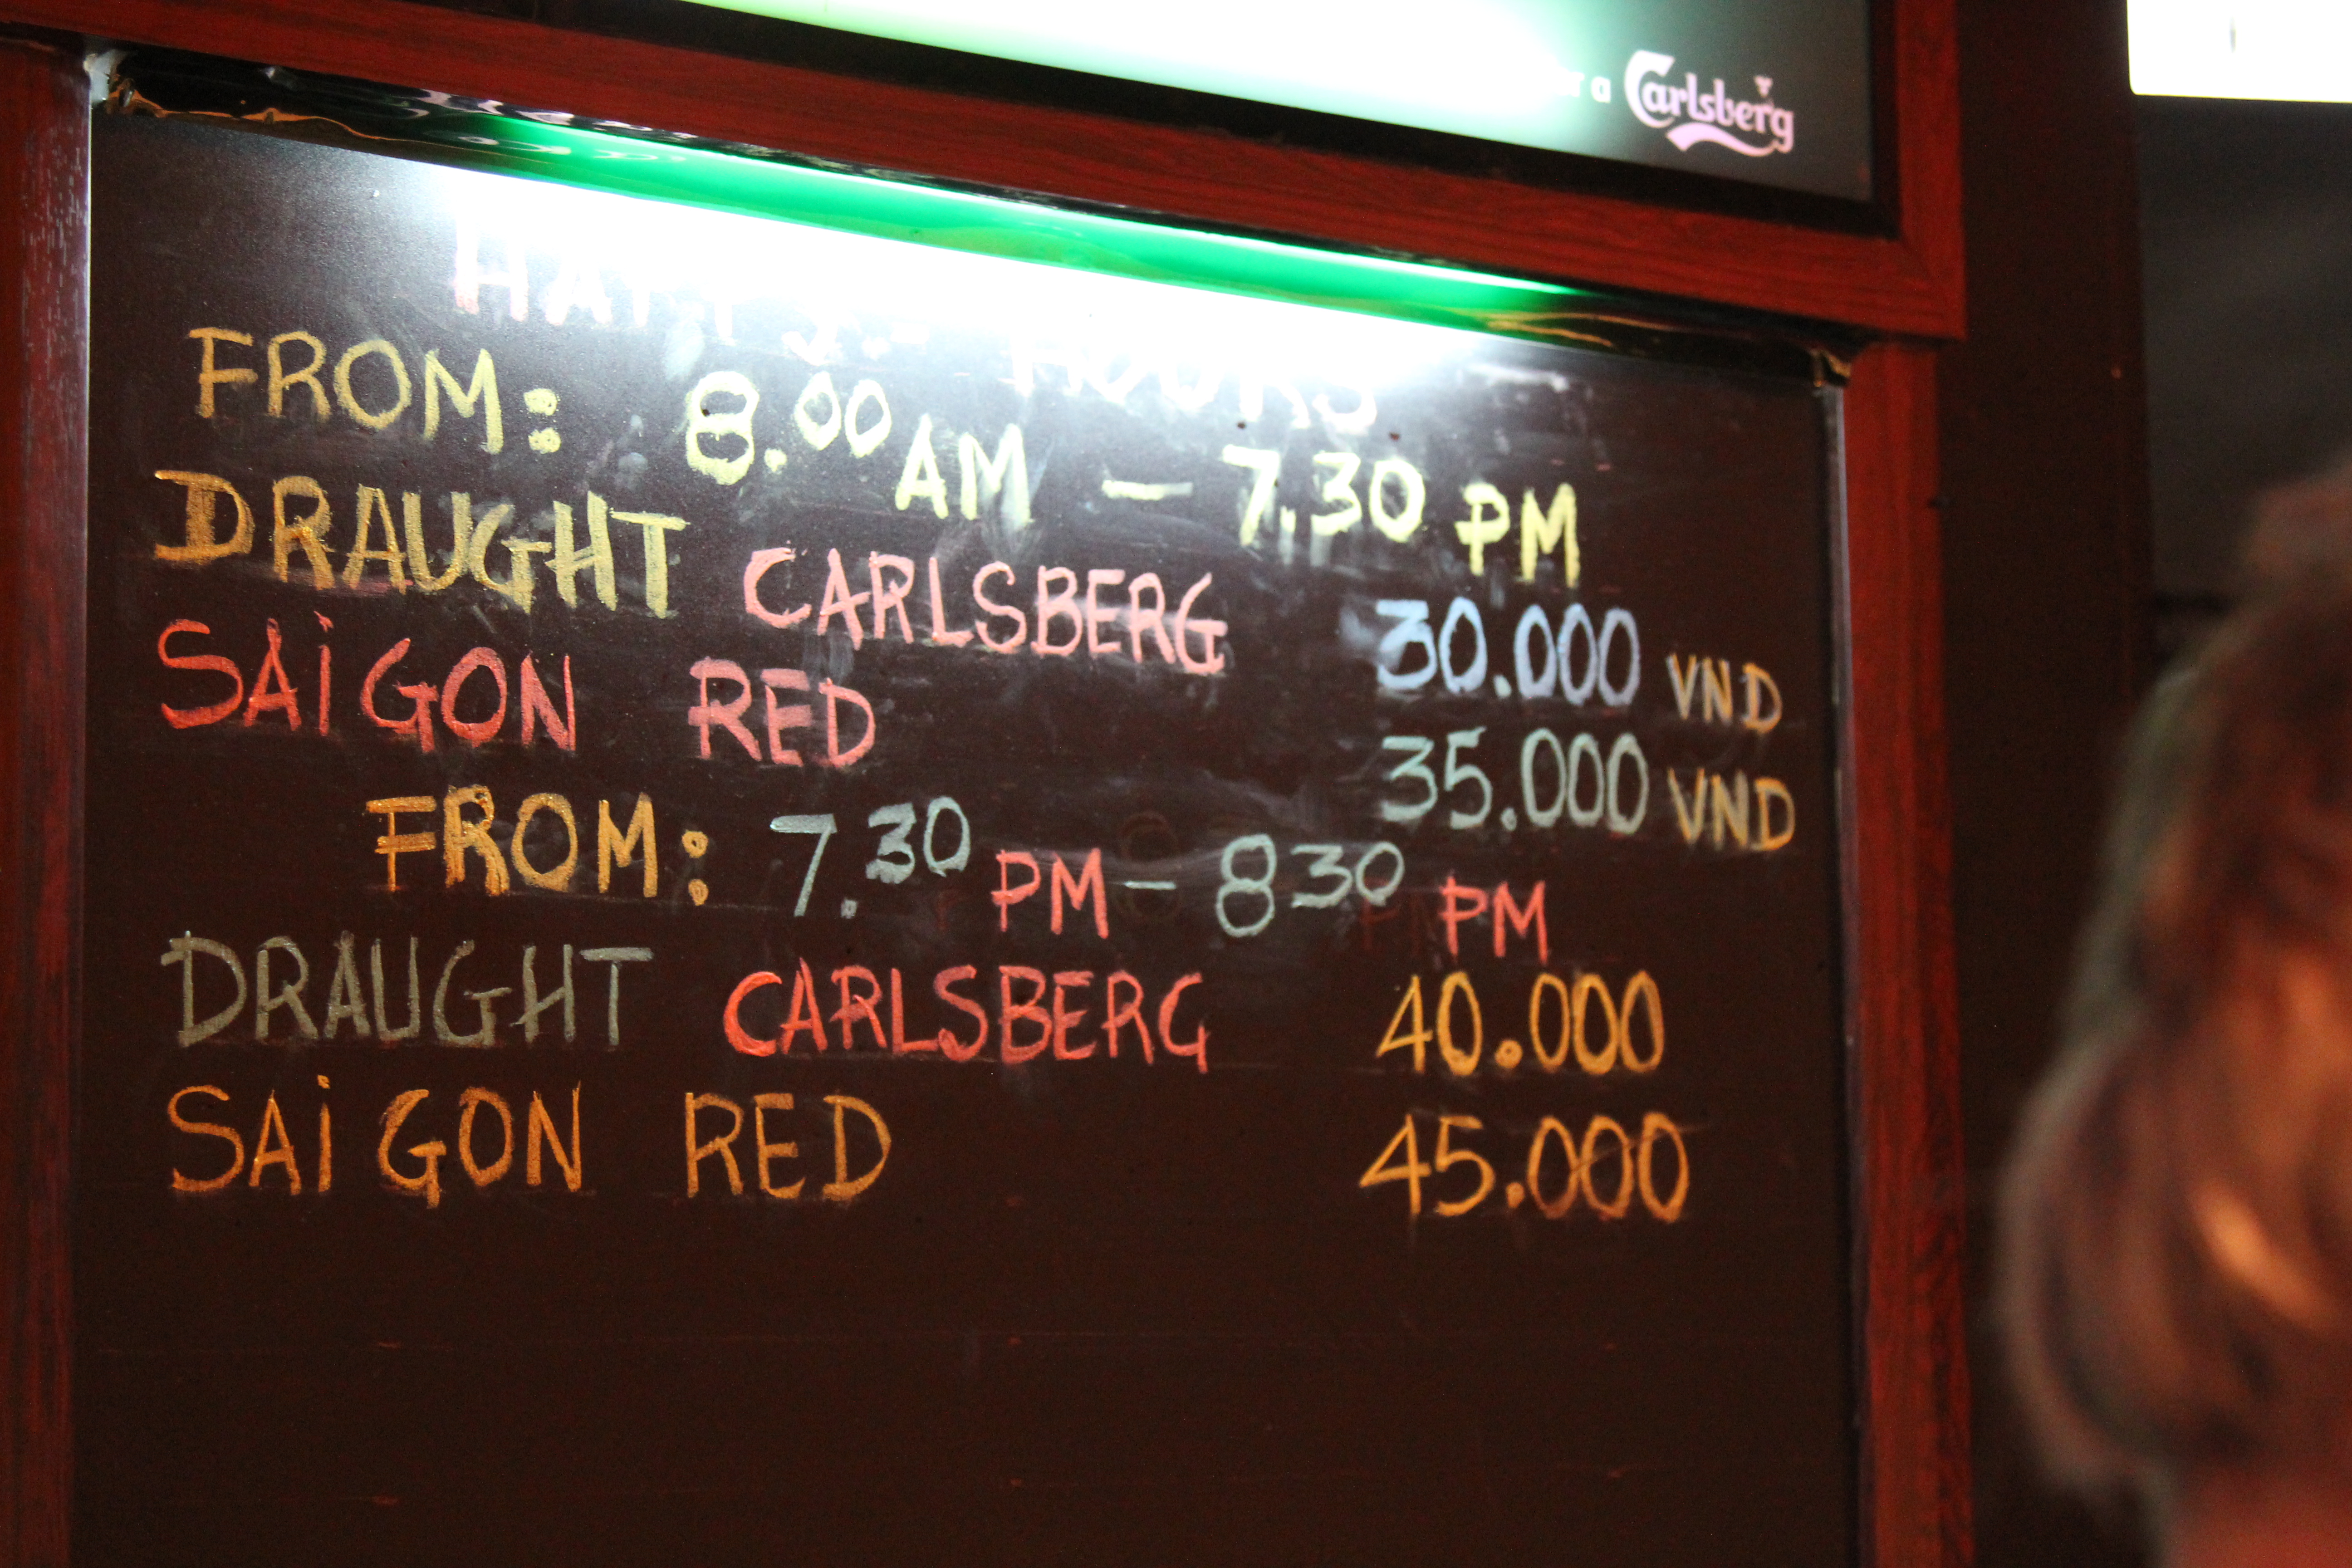 a Carlsberg
HAPPY HOURS
FROM: 8.00 AM — 7.30 PM
DRAUGHT CARLSBERG 30.000 VND
SAiGON RED 35.000 VND
FROM: 7.30 PM - 8 30 PM
DRAUGHT CARLSBERG 40.000
SAiGON RED 45.000